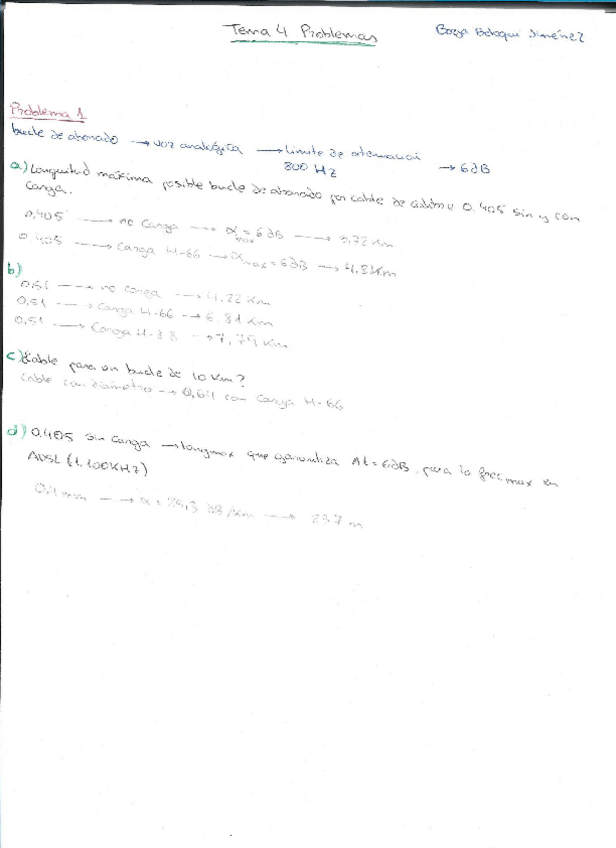 Tema 4 Problemas
Borja Jiménez
Problema 1
bucle de abonado → voz analógica → límite de atenuación → 6dB
800 Hz
a) Longitud máxima posible bucle de abonado por cable de calibre 0.405 sin y con
carga.
0,405 → no carga → α max = 6dB → 3,72 Km
0.405 → carga H-66 → α max = 6dB → 4.8Km
b)
0,51 → no carga → 4.22 Km
0,51 → carga H-66 → 6.81 Km
0,51 → carga H-88 → 7,79 Km
c) para un bucle de 10 Km?
cable con diámetro → con carga H-66
d) 0.405 sin carga → long max que garantiza At = 6dB, para la frec max en
ADSL (1.100KHz)
mm → α = dB/Km → 237 m